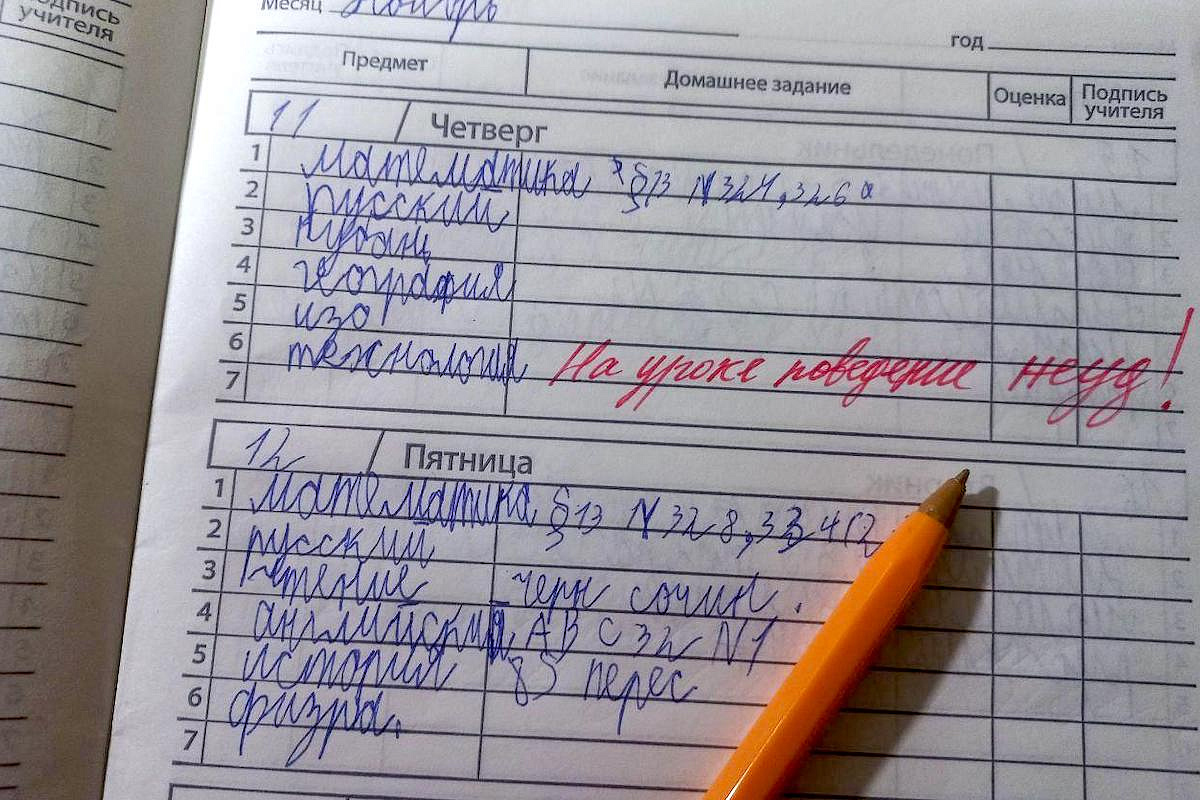 Подпись
учителя
Месяц Ноябрь
год
Предмет Домашнее задание Оценка Подпись учителя
11 Четверг
1 математика §13 №324,326а
2 русский
3 Кубан
4 география
5 изо
6 технология На уроке поведение неуд!
7
12 Пятница
1 математика §13 №328,334(2
2 русский
3 чтение черн сочин.
4 английский ABC 32 N1
5 история перес
6 физра.
7